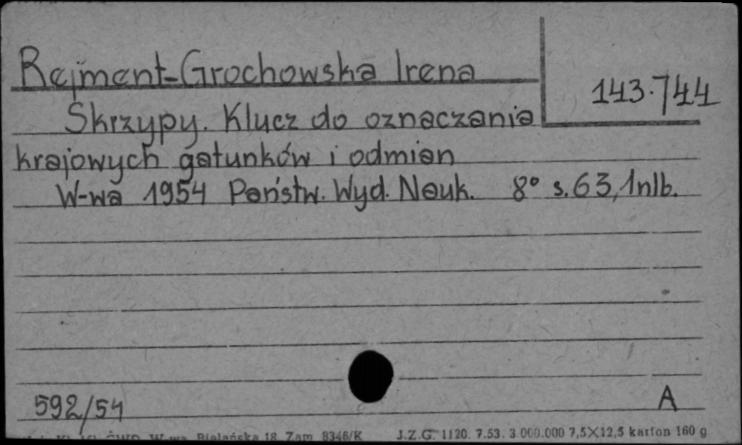 Rejment-Grochowska Irena
143.744
Skrzypy. Klucz do oznaczania
krajowych gatunków i odmian
W-wa 1954 Państw. Wyd. Nauk. 8° s.63,1nlb.
592/54
A
W-wa Bielańska 18 Zam 8346/K J.Z.G. 1120. 7.53. 3.000.000 7,5×12,5 karton 160 g